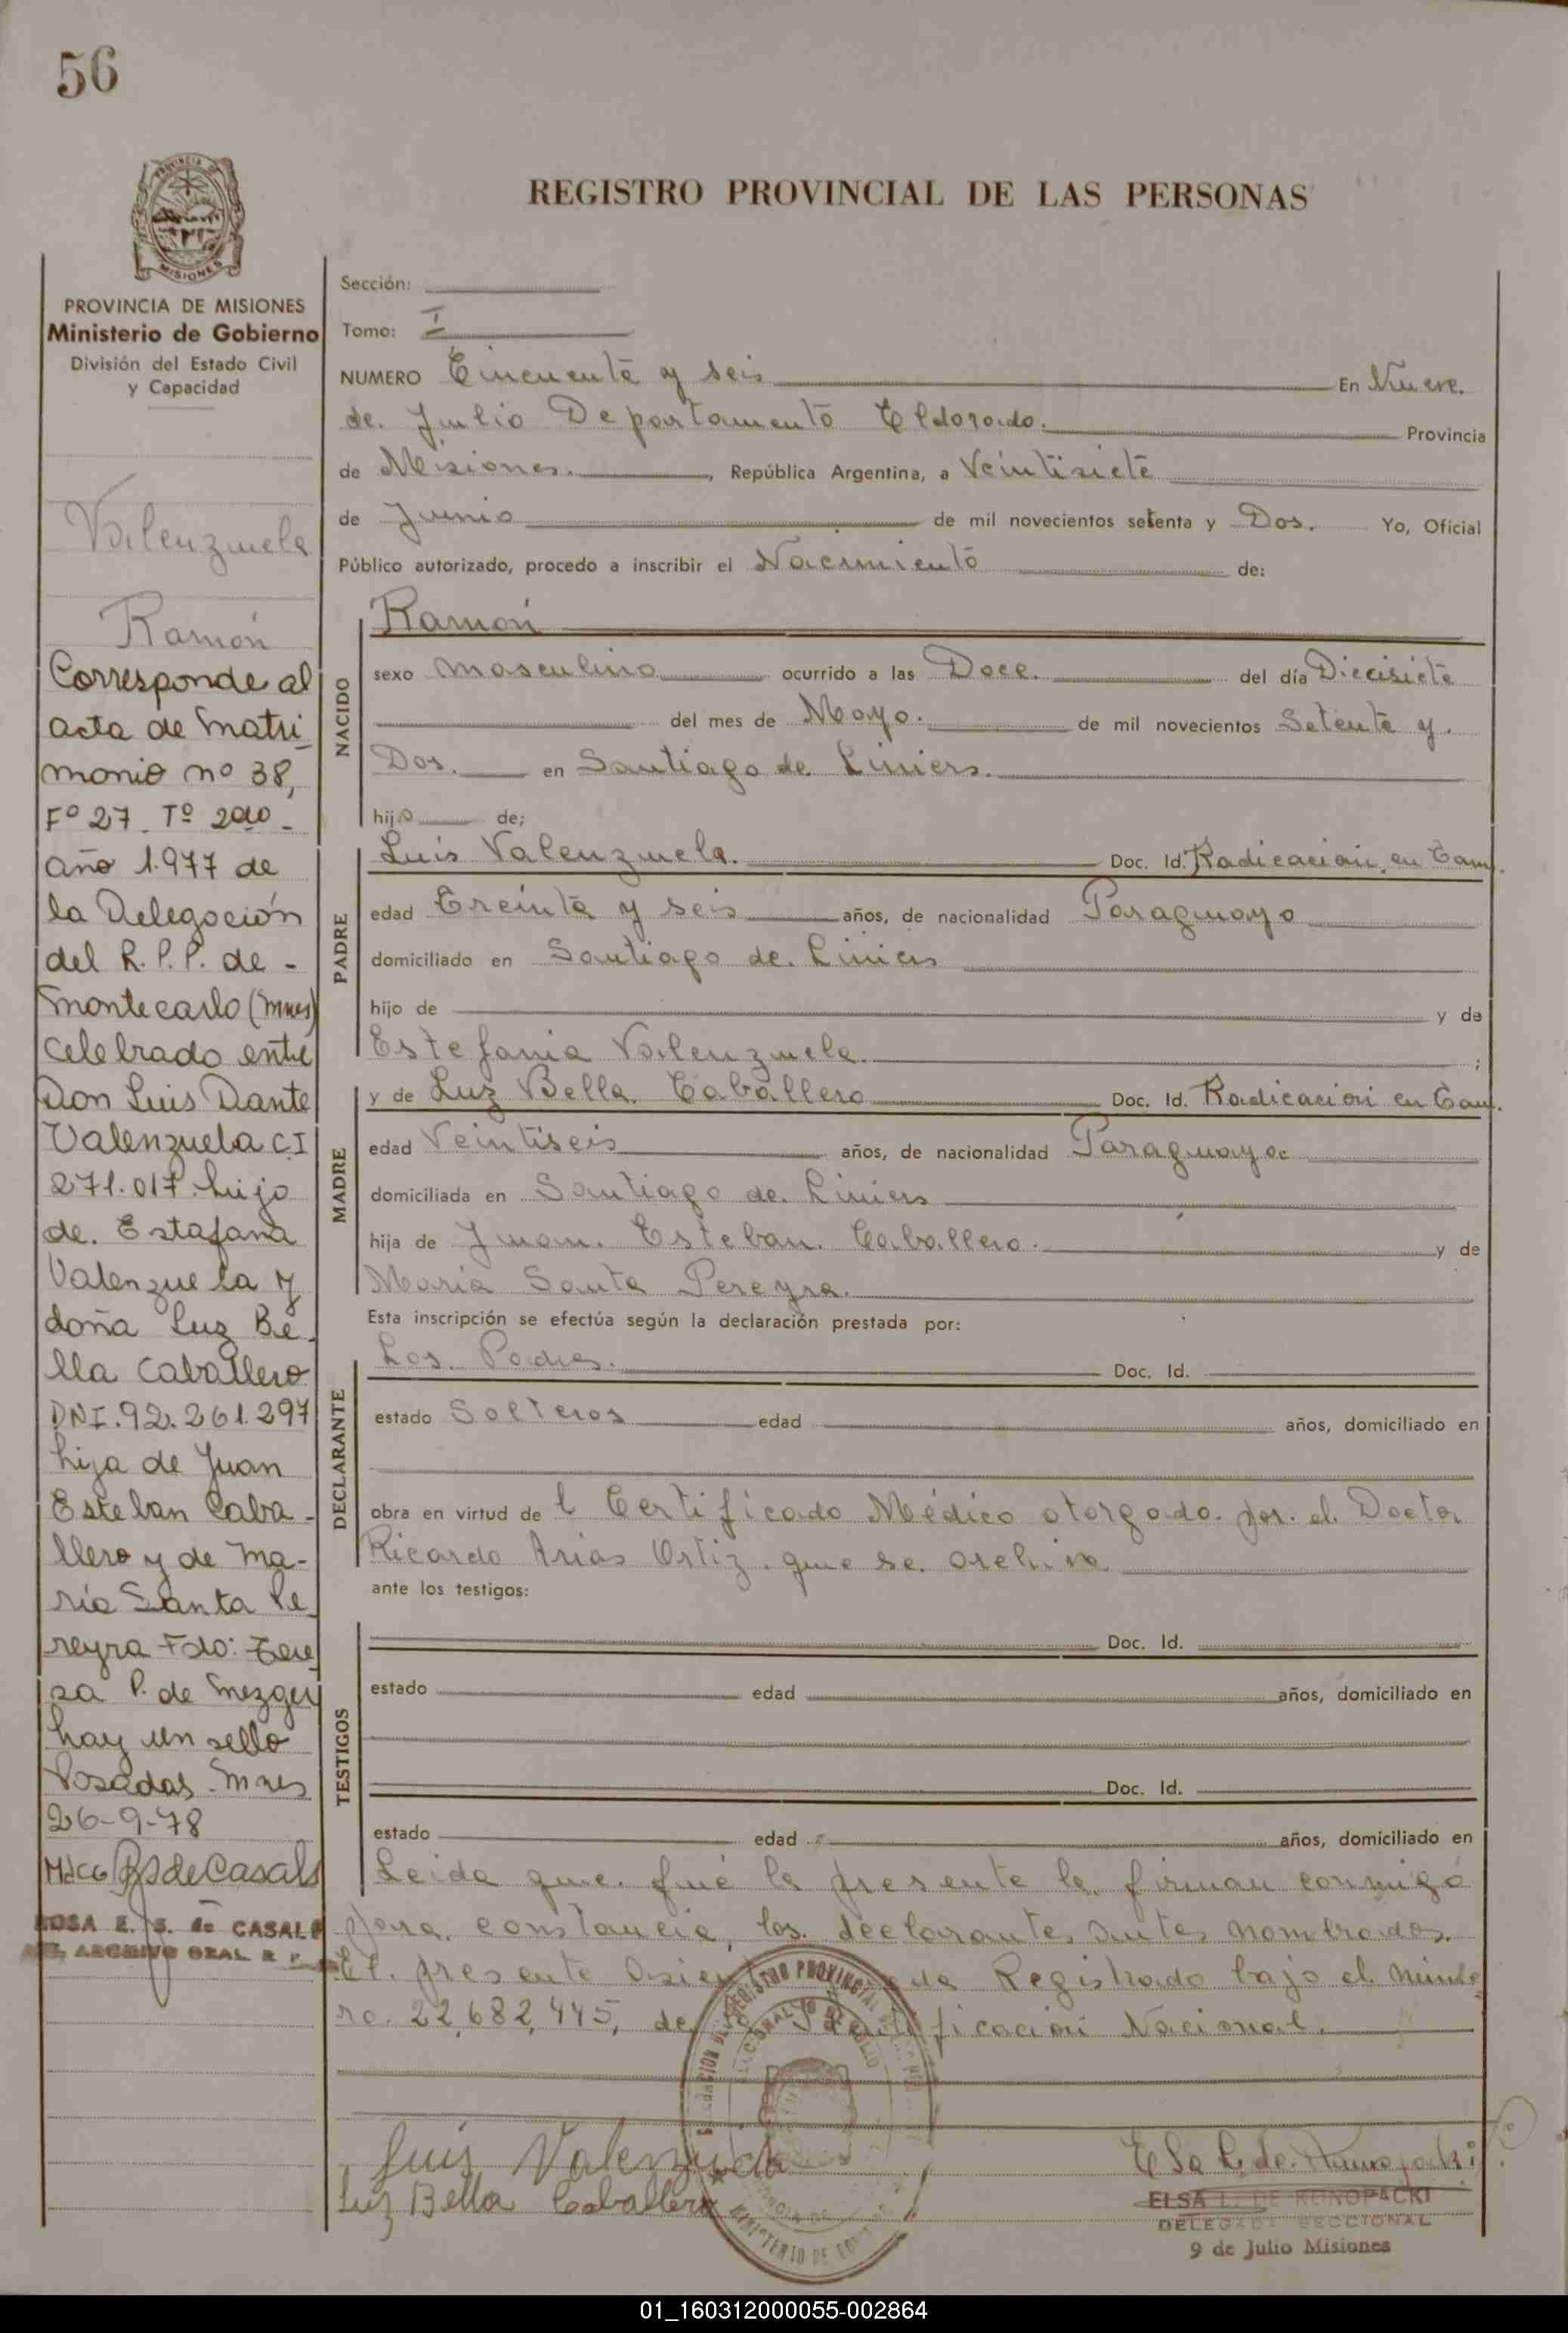 56
PROVINCIA DE
MISIONES
PROVINCIA DE MISIONES
Ministerio de Gobierno
División del Estado Civil
y Capacidad
Valenzuela
Ramón
Corresponde al
acta de Matri
monio nº 38,
Fº 27. Tº 2do -
año 1.977 de
la Delegación
del R.P.P. de -
Montecarlo (Mnes)
celebrado entre
Don Luis Dante
Valenzuela CI
271.017 hijo
de. Estafana
Valenzuela y
doña Luz Be
lla Caballero
DNI.92.261.297
hija de Juan
Esteban Caba -
llero y de Ma-
ría Santa Pe
reyra Fdo: Tere
sa P. de Mezger
hay un sello
Posadas. Mnes
26-9-78
RSdeCasals
ROSA E. S. de CASALS
ARCHIVO GRAL R. P.
REGISTRO PROVINCIAL DE LAS PERSONAS
Sección:
Tomo: I
NUMERO Cincuenta y seis En Nueve.
de. Julio Departamento Eldorado. Provincia
de Misiones. , República Argentina, a Veintisiete
de Junio de mil novecientos setenta y Dos. Yo, Oficial
Público autorizado, procedo a inscribir el Nacimiento de:
NACIDO
Ramón
sexo masculino ocurrido a las Doce. del día Diecisiete
del mes de Mayo. de mil novecientos Setenta y.
Dos. en Santiago de Liniers.
hijo de;
PADRE
Luis Valenzuela. Doc. Id. Radicación en Tam.
edad Treinta y seis años, de nacionalidad Paraguayo
domiciliado en Santiago de. Liniers
hijo de y de
Estefania Valenzuela. ;
MADRE
y de Luz Bella. Caballero Doc. Id. Radicación en Tam.
edad Veintiseis años, de nacionalidad Paraguaya
domiciliada en Santiago de. Liniers
hija de Juan. Esteban. Caballero. y de
María Santa Pereyra.
Esta inscripción se efectúa según la declaración prestada por:
DECLARANTE
Los. Padres. Doc. Id.
estado Solteros edad años, domiciliado en
obra en virtud de l Certificado Médico otorgado. por. el. Doctor
Ricardo Arias Ortiz. que se. archiva
ante los testigos:
TESTIGOS
Doc. Id.
estado edad años, domiciliado en
Doc. Id.
estado edad años, domiciliado en
Leida que. fué la presente la. firman conmigo
para. constancia, los. declarantes antes nombrados.
El. presente Asiento queda Registrado bajo el núme
ro. 22,682,445, de la Identificación Nacional.
Luis Valenzuela
Luz Bella Caballero
Elsa L. de. Konopacki
ELSA L. DE KONOPACKI
DELEGADA SECCIONAL
9 de Julio Misiones
01_160312000055-002864